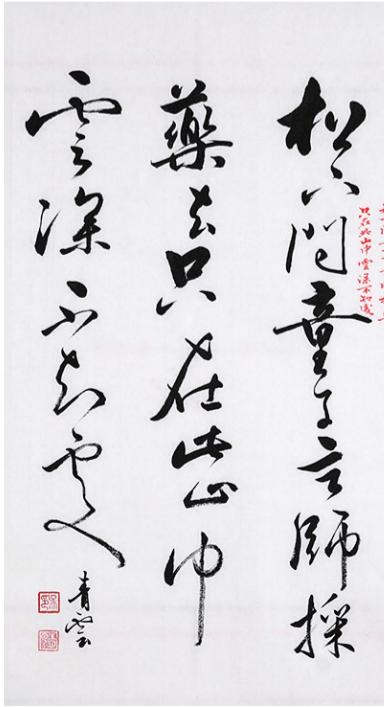 松下問童子言師採
藥去只在此山中
雲深不知處
青雲
只在此山中雲深不知處